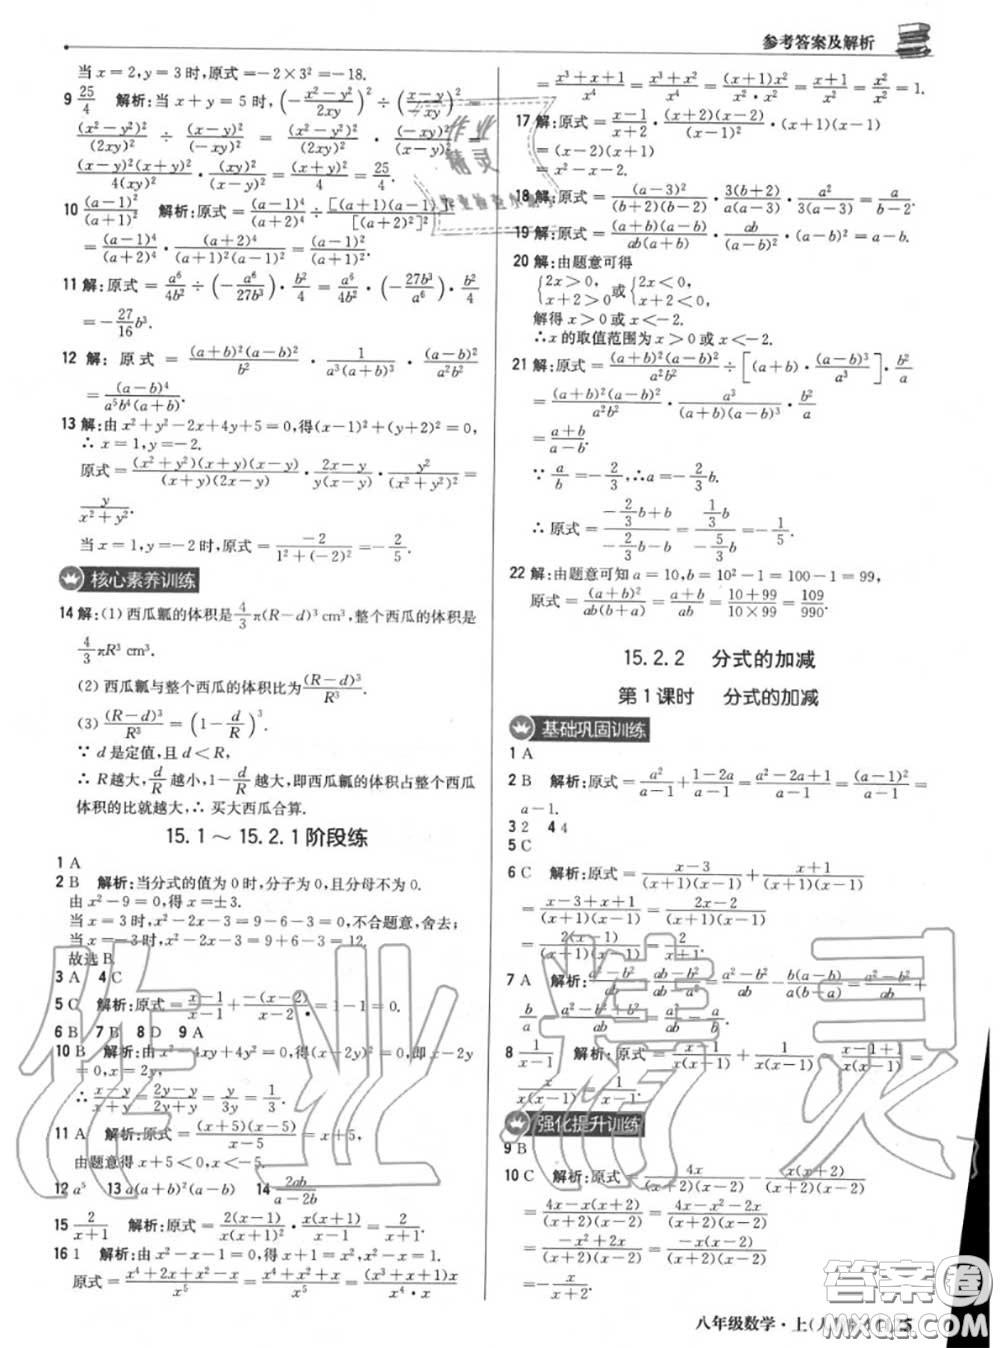 参考答案及解析
当 x=2,y=3时,原式=-2×3²=-18.
9 25/4 解析:当 x+y=5 时,(-(x²-y²)/(2xy))² ÷ ((x-y)/(xy))² =
(x²-y²)²/(2xy)² ÷ (x-y)²/(-xy)² = (x²-y²)²/(2xy)² · (-xy)²/(x-y)² =
(x-y)²(x+y)²/(4(xy)²) · (xy)²/(x-y)² = (x+y)²/4 = 25/4.
10 (a-1)²/(a+1)² 解析:原式=(a-1)⁴/(a+2)⁴ ÷ [(a+1)(a-1)]²/[(a+2)²]²
=(a-1)⁴/(a+2)⁴ · (a+2)⁴/((a+1)²(a-1)²) = (a-1)²/(a+1)².
11 解:原式=a⁶/4b² ÷ (-a⁶/27b³) · b²/4 = a⁶/4b² · (-27b³/a⁶) · b²/4
=-27/16 b³.
12 解:原式=(a+b)²(a-b)²/b² · 1/(a³(a+b)³) · (a-b)²/(a²b²)
=(a-b)⁴/(a⁵b⁴(a+b)).
13 解:由 x²+y²-2x+4y+5=0,得(x-1)²+(y+2)²=0,
∴ x=1,y=-2.
原式=(x²+y²)(x+y)(x-y)/((x+y)(2x-y)) · (2x-y)/(y(x-y)) · y²/(x²+y²)² =
y/(x²+y²).
当 x=1,y=-2时,原式=-2/(1²+(-2)²)=-2/5.
核心素养训练
14 解:(1)西瓜瓤的体积是 4/3 π(R-d)³ cm³,整个西瓜的体积是
4/3 πR³ cm³.
(2)西瓜瓤与整个西瓜的体积比为(R-d)³/R³.
(3)(R-d)³/R³=(1-d/R)³.
∵ d 是定值,且 d<R,
∴ R越大,d/R越小,1-d/R越大,即西瓜瓤的体积占整个西瓜
体积的比就越大,∴ 买大西瓜合算.
15.1～15.2.1阶段练
1 A
2 B 解析:当分式的值为0时,分子为0,且分母不为0.
由 x²-9=0,得 x=±3.
当 x=3时,x²-2x-3=9-6-3=0,不合题意,舍去;
当 x=-3时,x²-2x-3=9+6-3=12,
故选 B.
3 A 4 C
5 C 解析:原式=(x-1)/(x-1)+(-(x-2))/(x-2)=1-1=0.
6 B 7 B 8 D 9 A
10 B 解析:由 x²-4xy+4y²=0,得(x-2y)²=0,即 x-2y
=0,∴ x=2y,
∴ (x-y)/(x+y)=(2y-y)/(2y+y)=y/3y=1/3.
11 A 解析:原式=(x+5)(x-5)/(x-5)=x+5,
由题意得 x+5<0,∴ x<-5.
12 a⁵ 13 a(a+b)²(a-b) 14 2ab/(a-2b)
15 2/(x+1) 解析:原式=2(x-1)/(x(x+1)²) · x(x+1)/(x-1)=2/(x+1).
16 1 解析:由 x²-x-1=0,得 x²=x+1,x²-x=1.
原式=(x⁴+2x³+x²)/x⁵=(x⁴+x³+x³+x²)/x⁵=(x³+x²+x)x/x⁵
=(x³+x+1)/x⁴=(x³+x²)/x⁴=(x+1)x²/(x²·x²)=(x+1)/x²=x²/x²=1.
17 解:原式=(x-1)/(x+2) · (x+2)(x-2)/(x-1)² · (x+1)(x-1)
=(x-2)(x+1)
=x²-x-2.
18 解:原式=(b+2)(b-2)/((b+2)²) · a(a-3)/(3(b-2)) · 3/(a(a-3))
19 解:原式=(a+b)(a-b)/(ab(a+b)) · a²b/a=a-b.
20 解:由题意可得
{2x>0, x+2>0 或{2x<0, x+2<0.
解得 x>0或 x<-2.
∴x 的取值范围为 x>0或 x<-2.
21 解:原式=(a+b)²(a-b)²/(a²b²) ÷ [(a+b)·(a-b)³/a³] · b²/a
=(a+b)²(a-b)²/(a²b²) · a³/((a+b)(a-b)³) · b²/a
=(a+b)/(a-b).
∵ a/b=-2/3,∴a=-2/3 b.
∴ 原式=(-2/3 b+b)/(-2/3 b-b)=(1/3 b)/(-5/3 b)=-1/5.
22 解:由题意可知 a=10,b=10²-1=100-1=99,
原式=(a+b)²/(ab(b+a))=(a+b)/ab=(10+99)/(10×99)=109/990.
15.2.2 分式的加减
第1课时 分式的加减
基础巩固训练
1 A
2 B 解析:原式=a²/(a-1)+(1-2a)/(a-1)=(a²-2a+1)/(a-1)=(a-1)²/(a-1)=
a-1.
3 2 4 4
5 C
6 C 解析:原式=(x-3)/((x+1)(x-1))+(x+1)/((x+1)(x-1))
=(x-3+x+1)/((x+1)(x-1))=(2x-2)/((x+1)(x-1))
=2(x-1)/((x+1)(x-1))=2/(x+1).
7 A 解析:原式=(a²-b²)/ab-(ab-b²)/(ab-a²)=(a²-b²)/ab-b(a-b)/(a(b-a))=(a²-b²)/ab+
b/a=(a²-b²)/ab+b²/ab=(a²-b²+b²)/ab=a²/ab=a/b.
8 1/(x-1) 解析:原式=(x-1)/(x(x-1))+1/(x(x-1))=(x-1+1)/(x(x-1))=
x/(x(x-1))=1/(x-1).
强化提升训练
9 B
10 C 解析:原式=4x/((x+2)(x-2))-x(x+2)/((x+2)(x-2))
=(4x-x(x+2))/((x+2)(x-2))=(4x-x²-2x)/((x+2)(x-2))
=(-x²+2x)/((x+2)(x-2))=-x(x-2)/((x+2)(x-2))=
-x/(x+2).
八年级数学·上
作业精灵
答案圈